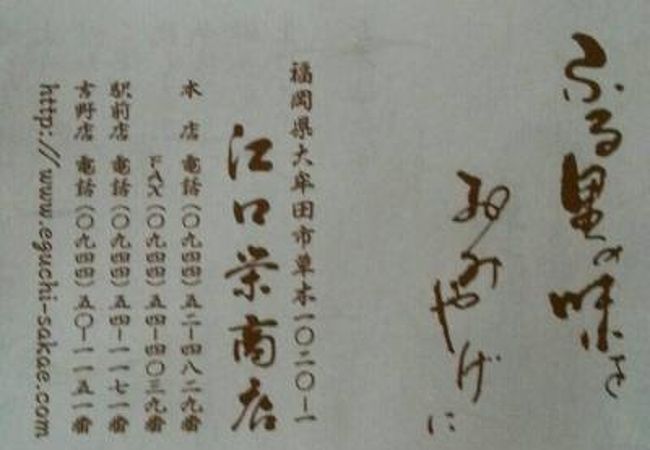 ふる里の味を
おみやげに
福岡県大牟田市草木一〇二〇ー一
江口栄商店
本店 電話(〇九四四)五二ー四八二九番
FAX(〇九四四)五四ー四〇三九番
駅前店 電話(〇九四四)五四ー一一七一番
吉野店 電話(〇九四四)五〇ー一一五一番
http://www.eguchi-sakae.com